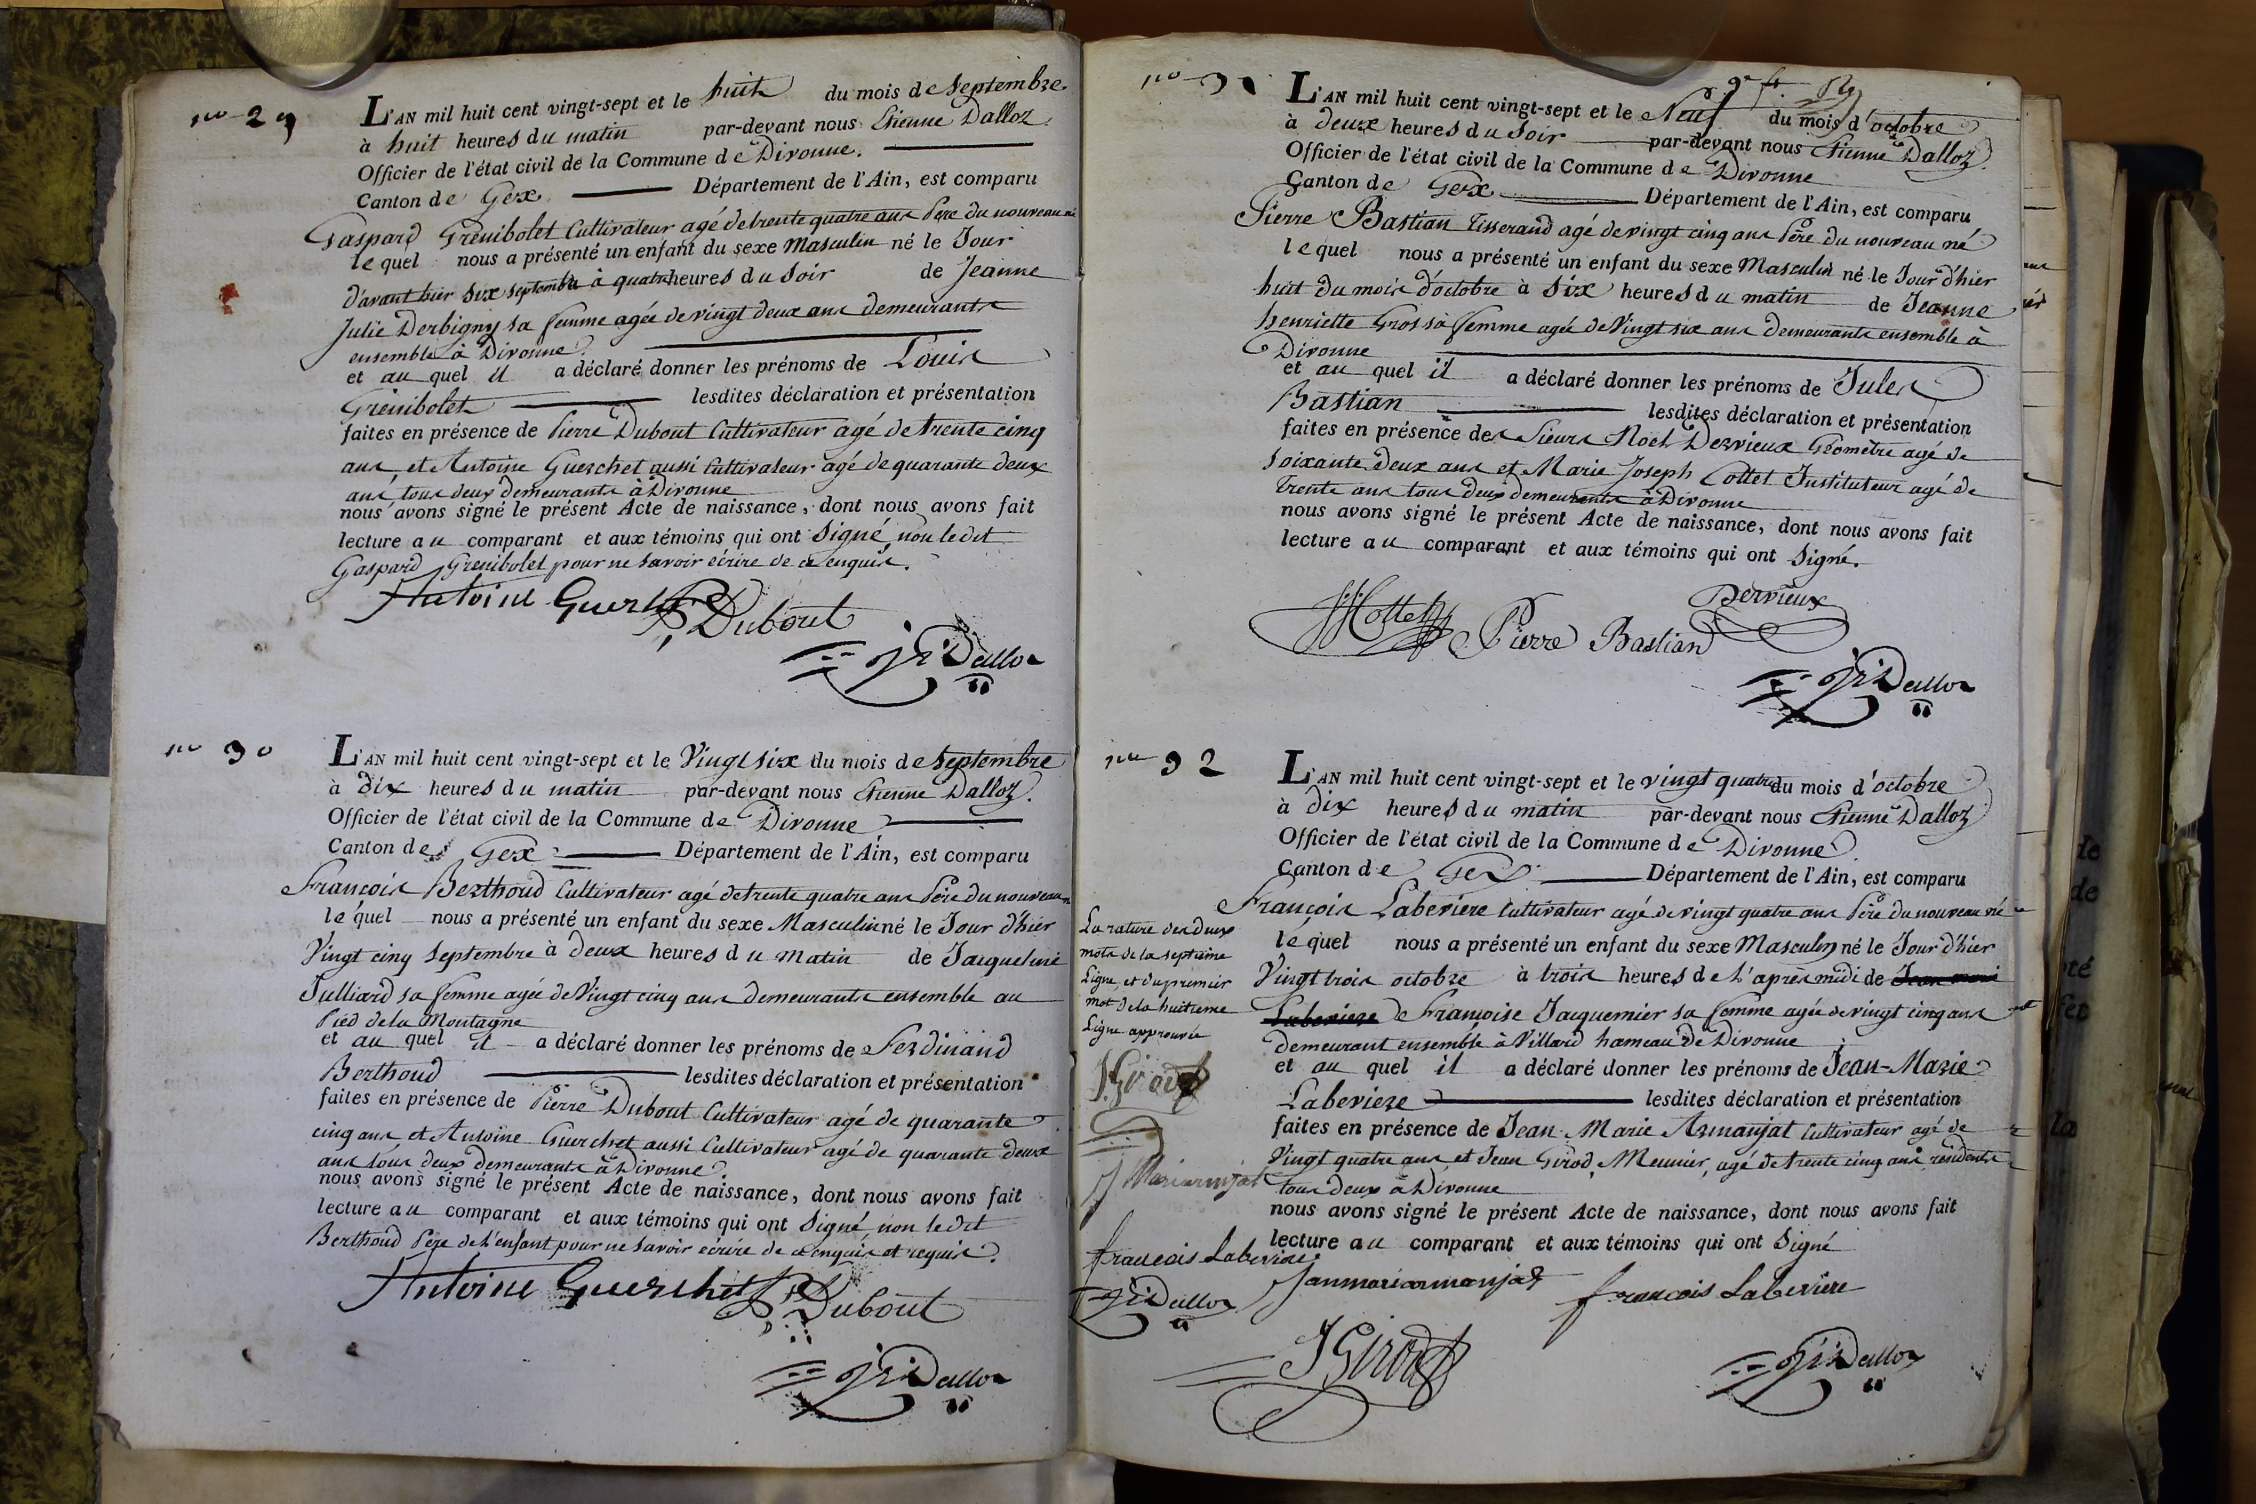 nº 29
L'AN mil huit cent vingt-sept et le huit du mois de Septembre
à huit heures du matin par-devant nous Etienne Dalloz
Officier de l'état civil de la Commune de Divonne.
Canton de Gex Département de l'Ain, est comparu
Gaspard Grenibolet Cultivateur agé de trente quatre ans Père du nouveau né
lequel nous a présenté un enfant du sexe Masculin né le Jour
d'avant hier six septembre à quatre heures du Soir de Jeanne
Julie Derbigny sa femme agée de vingt deux ans demeurants
ensemble à Divonne.
et au quel il a déclaré donner les prénoms de Louis
Grenibolet lesdites déclaration et présentation
faites en présence de Pierre Dubout Cultivateur agé de trente cinq
ans, et Antoine Guerchet aussi Cultivateur agé de quarante deux
ans, tous deux demeurants à Divonne
nous avons signé le présent Acte de naissance, dont nous avons fait
lecture au comparant et aux témoins qui ont Signé, non le dit
Gaspard Grenibolet pour ne savoir écrire de ce enquis.
Antoine Guerchet
P. Dubout
Dalloz
nº 30
L'AN mil huit cent vingt-sept et le Vingt six du mois de Septembre
à dix heures du matin par-devant nous Etienne Dalloz.
Officier de l'état civil de la Commune de Divonne
Canton de Gex Département de l'Ain, est comparu
François Berthoud Cultivateur agé de trente quatre ans Père du nouveau né
lequel nous a présenté un enfant du sexe Masculin né le Jour d'hier
Vingt cinq Septembre à deux heures du Matin de Jacqueline
Julliard sa femme agée de Vingt cinq ans demeurants ensemble au
Pied de la Montagne
et au quel il a déclaré donner les prénoms de Ferdinand
Berthoud lesdites déclaration et présentation
faites en présence de Pierre Dubout Cultivateur agé de quarante
cinq ans, et Antoine Guerchet aussi Cultivateur agé de quarante deux
ans tous deux demeurants à Divonne
nous avons signé le présent Acte de naissance, dont nous avons fait
lecture au comparant et aux témoins qui ont Signé, non le dit
Berthoud Père de l'enfant pour ne savoir écrire de ce enquis et requis.
Antoine Guerchet
P. Dubout
Dalloz
nº 31
L'AN mil huit cent vingt-sept et le Neuf du mois d'octobre
à deux heures du Soir par-devant nous Etienne Dalloz
Officier de l'état civil de la Commune de Divonne
Canton de Gex Département de l'Ain, est comparu
Pierre Bastian Tisserand agé de vingt cinq ans Père du nouveau né
lequel nous a présenté un enfant du sexe Masculin né le Jour d'hier
huit du mois d'octobre à six heures du matin de Jeanne
henriette Gros sa femme agée de Vingt six ans demeurants ensemble à
Divonne
et au quel il a déclaré donner les prénoms de Jules
Bastian lesdites déclaration et présentation
faites en présence des Sieurs Noël Dervieux Géomètre agé de
soixante deux ans et Marie Joseph Cottet Instituteur agé de
Trente ans tous deux demeurants à Divonne
nous avons signé le présent Acte de naissance, dont nous avons fait
lecture au comparant et aux témoins qui ont Signé.
Cottet
Pierre Bastian
Dervieux
Dalloz
nº 32
L'AN mil huit cent vingt-sept et le vingt quatre du mois d'octobre
à dix heures du matin par-devant nous Etienne Dalloz
Officier de l'état civil de la Commune de Divonne
Canton de Gex Département de l'Ain, est comparu
François Laberiere Cultivateur agé de vingt quatre ans Père du nouveau né
lequel nous a présenté un enfant du sexe Masculin né le Jour d'hier
Vingt trois octobre à trois heures de l'après midi de Jean marie
Laberiere de Françoise Jacquemier sa femme agée de vingt cinq ans
demeurant ensemble à Villard hameau de Divonne
et au quel il a déclaré donner les prénoms de Jean-Marie
Laberiere lesdites déclaration et présentation
faites en présence de Jean Marie Armanjat Cultivateur agé de
Vingt quatre ans, et Jean Girod, Meunier, agé de trente cinq ans, résidents
tous deux à Divonne
nous avons signé le présent Acte de naissance, dont nous avons fait
lecture au comparant et aux témoins qui ont Signé
Janmariarmanjat
francois Laberiere
J Girod
Dalloz
La rature des deux
mots de la septième
Ligne et du premier
mot de la huitieme
Ligne approuvée
J. Girod
francois Laberiere
Dalloz